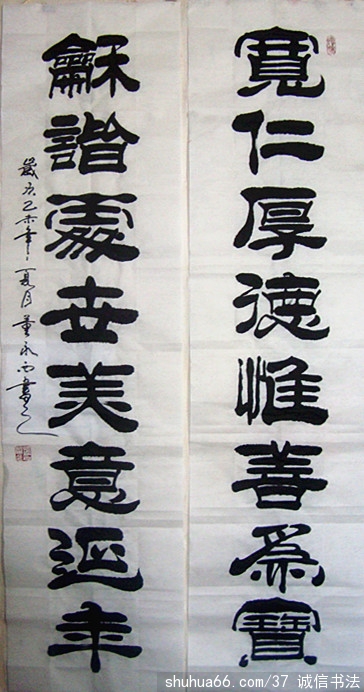 寬仁厚德惟善為寶
龢諧處世美意延年
歲 年夏月董 書
shuhua66.com/37 诚信书法